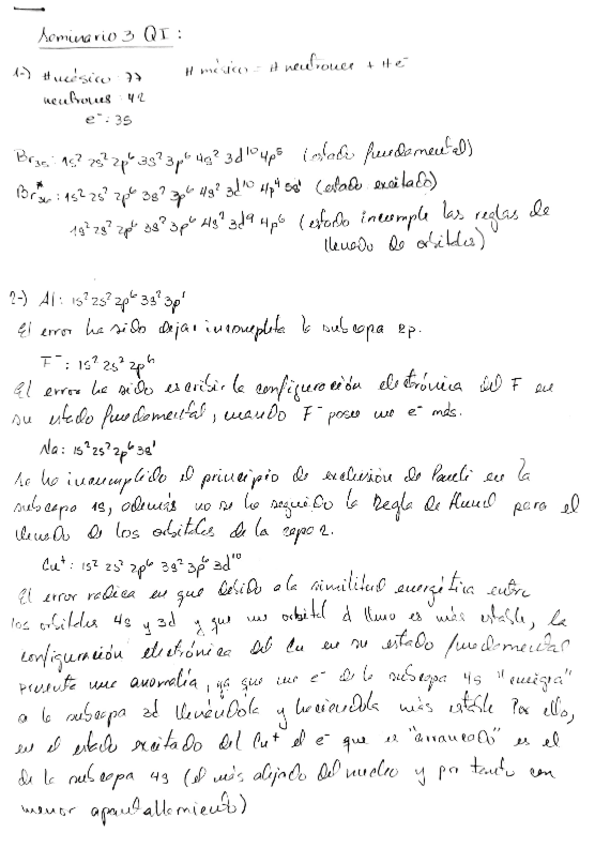 Seminario 3 QI:
1-) # másico: 77 # másico = # neutrones + # e⁻
neutrones: 42
e⁻: 35
Br₃₅: 1s² 2s² 2p⁶ 3s² 3p⁶ 4s² 3d¹⁰ 4p⁵ (estado fundamental)
Br₃₅*: 1s² 2s² 2p⁶ 3s² 3p⁶ 4s² 3d¹⁰ 4p⁴ 5s¹ (estado excitado)
1s² 2s² 2p⁶ 3s² 3p⁶ 4s² 3d⁹ 4p⁶ (estado incumple las reglas de
llenado de orbitales)
2-) Al: 1s² 2s² 2p⁶ 3s² 3p¹
El error ha sido dejar incompleta la subcapa 2p.
F⁻: 1s² 2s² 2p⁶
El error ha sido escribir la configuración electrónica del F en
su estado fundamental, cuando F⁻ posee un e⁻ más.
Na: 1s² 2s² 2p⁶ 3s¹
Se ha incumplido el principio de exclusión de Pauli en la
subcapa 1s, además no se ha seguido la Regla de Hund para el
llenado de los orbitales de la capa 2.
Cu⁺: 1s² 2s² 2p⁶ 3s² 3p⁶ 3d¹⁰
El error radica en que debido a la similitud energética entre
los orbitales 4s y 3d y que un orbital d lleno es más estable, la
configuración electrónica del Cu en su estado fundamental
presenta una anomalía, ya que un e⁻ de la subcapa 4s "emigra"
a la subcapa 3d llenándola y haciéndola más estable Por ello,
en el estado excitado del Cu⁺ el e⁻ que es "arrancado" es el
de la subcapa 4s (el más alejado del nucleo y por tanto con
menor apantallamiento)